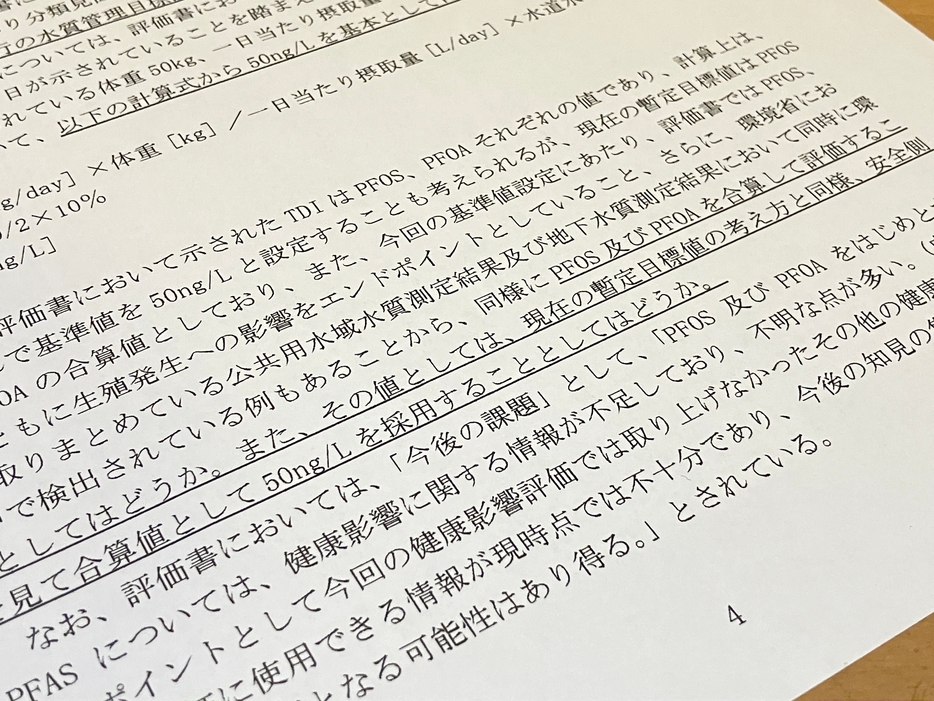 り分類見
行の水質管理目標
については、評価書にお
日が示されていることを踏まえ
れている体重50kg、一日当たり摂取量
いて、以下の計算式から50ng/Lを基本として
g/day]×体重[kg]/一日当たり摂取量[L/day]×水道水
/2×10%
ng/L]
評価書において示されたTDIはPFOS、PFOAそれぞれの値であり、計算上は、
で基準値を50ng/Lと設定することも考えられるが、現在の暫定目標値はPFOS
OAの合算値としており、また、今回の基準値設定にあたり、評価書ではPFOS、
ともに生殖発生への影響をエンドポイントとしていること、さらに、環境省にお
取りまとめている公共用水域水質測定結果及び地下水質測定結果において同時に環
で検出されている例もあることから、同様にPFOS及びPFOAを合算して評価するこ
としてはどうか。また、その値としては、現在の暫定目標値の考え方と同様、安全側
見て合算値として50ng/Lを採用することとしてはどうか。
なお、評価書においては、「今後の課題」として、「PFOS 及び PFOA をはじめと
PFAS については、健康影響に関する情報が不足しており、不明な点が多い。
ポイントとして今回の健康影響評価では取り上げなかったその他の健康
に使用できる情報が現時点では不十分であり、今後の知見の
となる可能性はあり得る。」とされている。
4